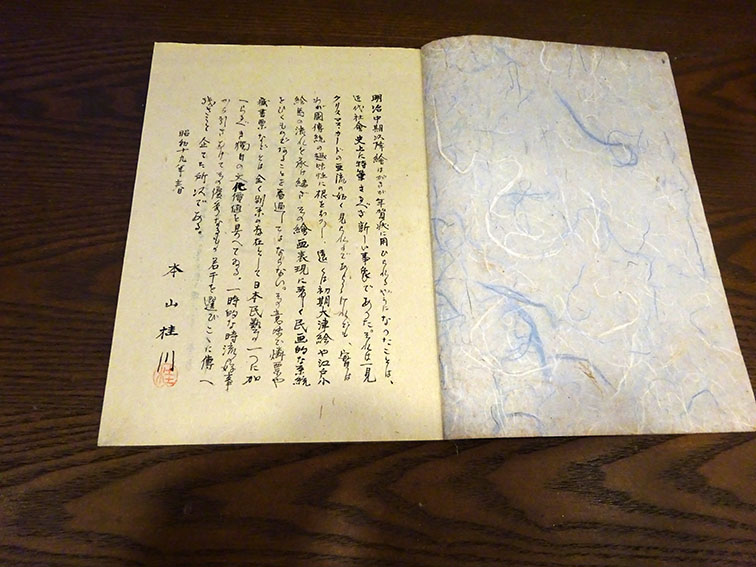 明治中期以降絵はがきが年賀状に用ひられるやうになつたことは、
近代社会史上に特筆すべき新しい事象であつたがこれは一見
クリスマスカードの亜流の如く見られ勝であるけれども、実は
わが国伝統の趣味性に根をおろし、遠くは初期大津絵や江戸小
絵馬の流れを承け継ぎその絵画表現に等しく民画的な系統
をひくものであることを看過してはならない。その意味で燐票や
蔵書票などとは全く別系の存在として日本民芸の一つに加
へらるべき独自の文化価値を具へてゐる。一時的な時流好事
から引きあげて優秀なるもの若干を選びここに伝へ
残さうと企てた所以である。
昭和十九年
本山桂川